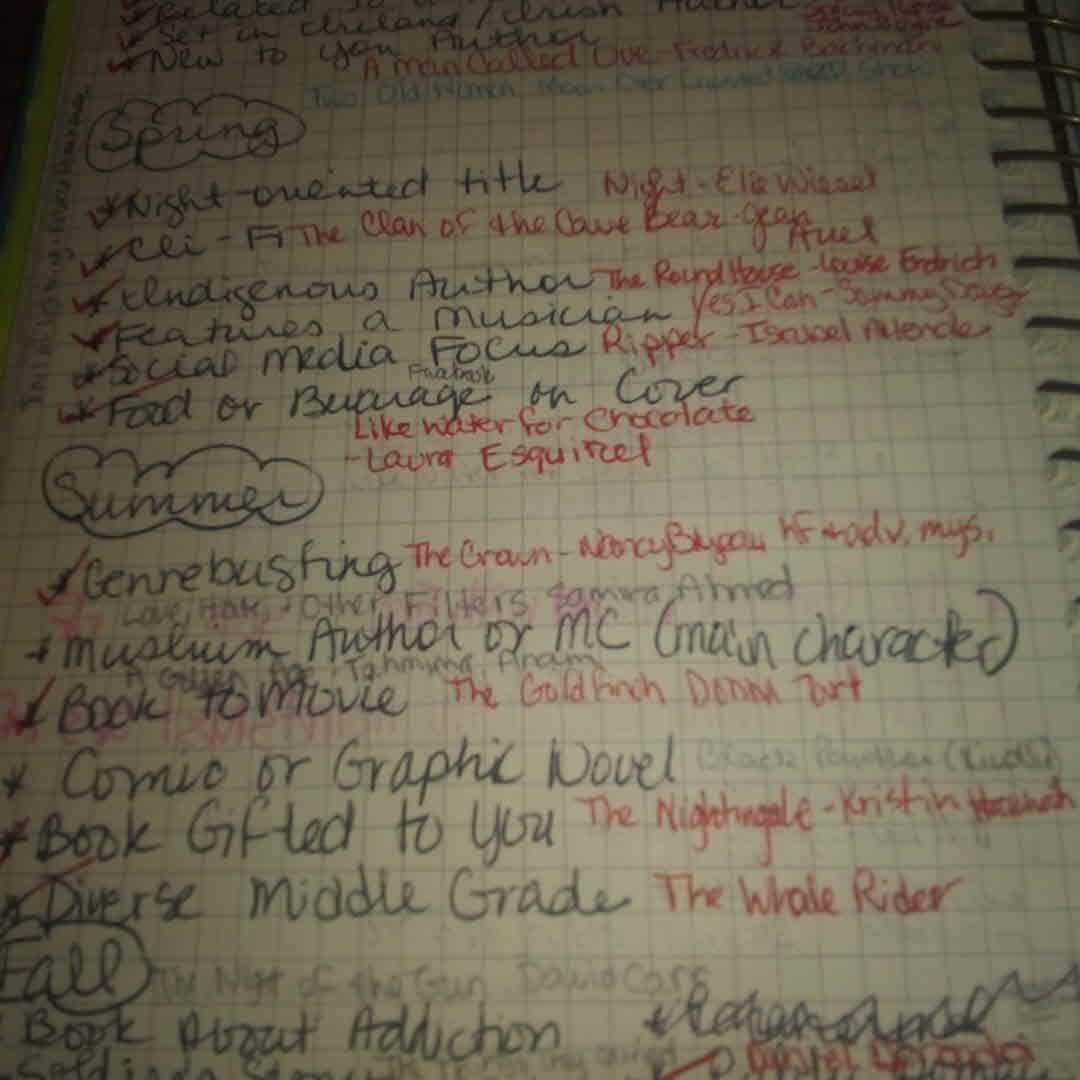 Related to
Set in Ireland/Irish Author
New to you Author
A Man Called Ove - Fredrick Backman
Two Old Women
Spring
Night oriented title Night - Elie Wiesel
Cli-Fi The Clan of the Cave Bear - Jean Auel
Indigenous Author The Round House - Louise Erdrich
Features a musician Yes I Can - Sammy Davis
Social media Focus Ripper - Isabel Allende
Food or Buevrage on Cover
Like Water for Chocolate
- Laura Esquivel
Summer
Genrebusting The Crown - Nancy Bilyeau hf + adv. mys.
Love, Hate, + Other Filters Samira Ahmed
Muslium Author or MC (main character)
A Golden Age - Tahmima Anam
Book to Movie The Goldfinch Donna Tart
Comic or Graphic Novel Black Panther (Kindle)
Book Gifted to you The Nightingale - Kristin Hannah
Diverse Middle Grade The Whale Rider
Fall The Night of the Gun David Carr
Book About Addiction